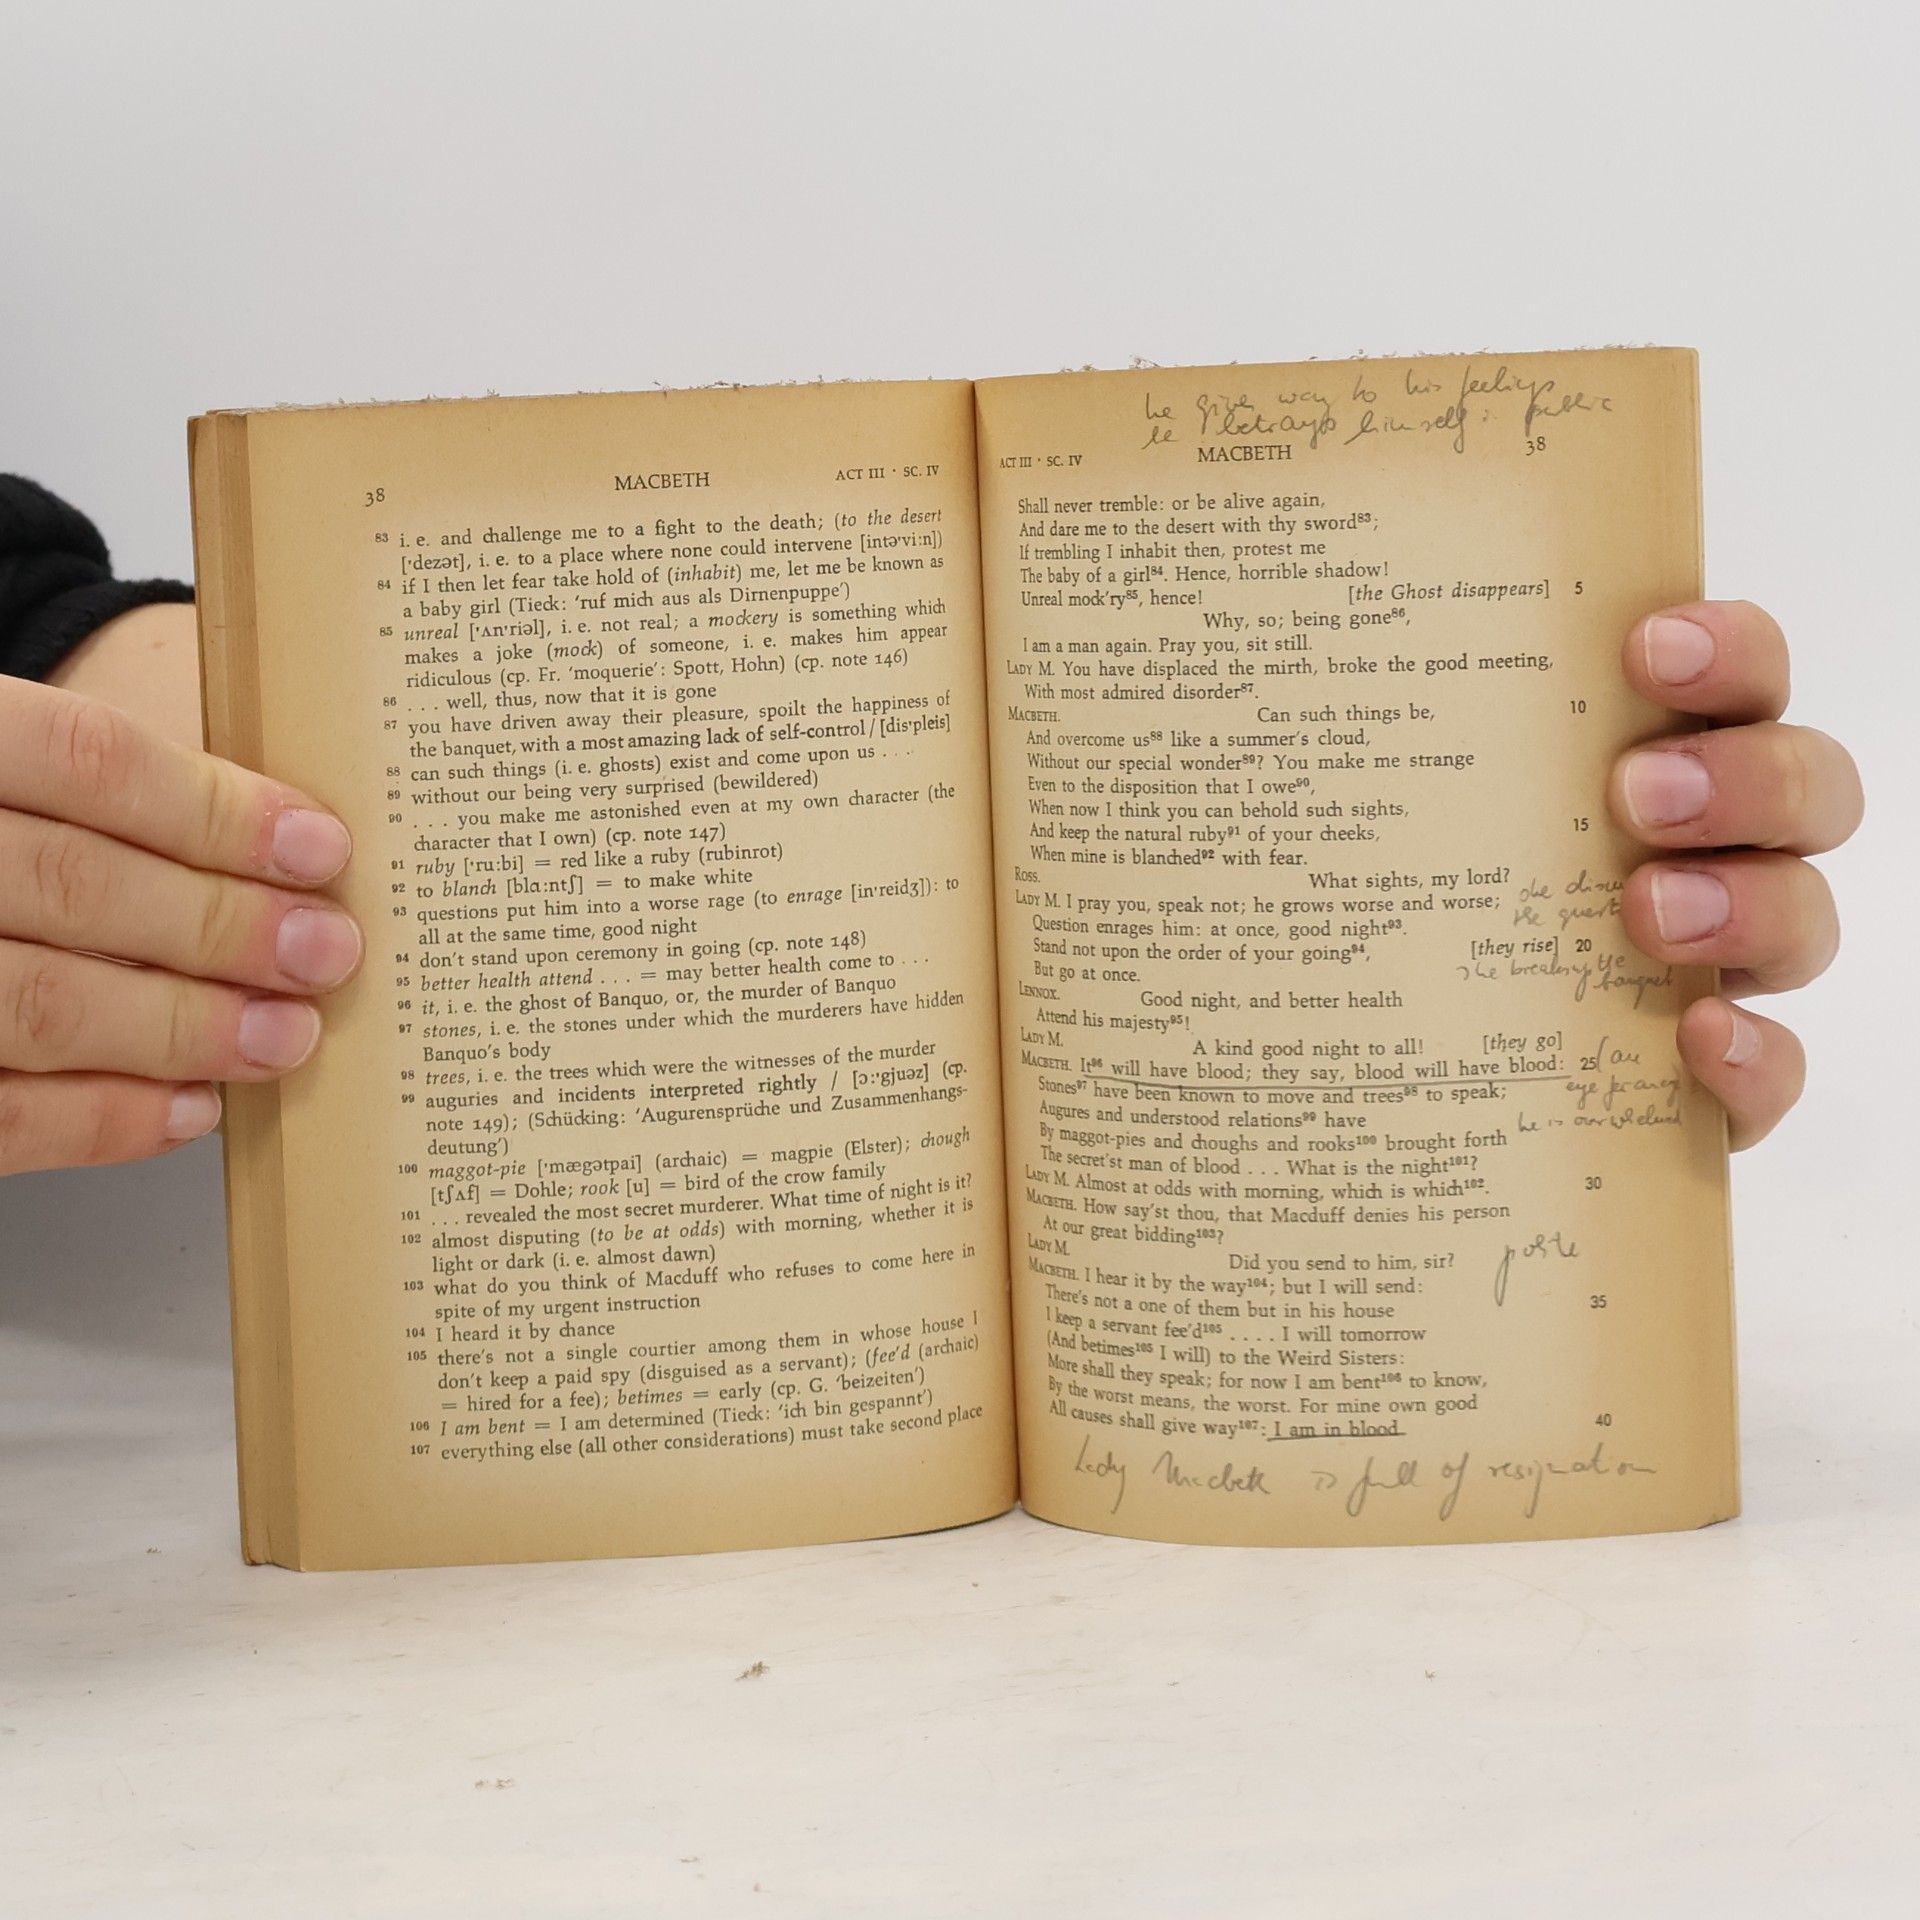 38 MACBETH ACT III · SC. IV
83 i. e. and challenge me to a fight to the death; (to the desert
['dezət], i. e. to a place where none could intervene [intə'vi:n])
84 if I then let fear take hold of (inhabit) me, let me be known as
a baby girl (Tieck: 'ruf mich aus als Dirnenpuppe')
85 unreal ['ʌn'riəl], i. e. not real; a mockery is something which
makes a joke (mock) of someone, i. e. makes him appear
ridiculous (cp. Fr. 'moquerie': Spott, Hohn) (cp. note 146)
86 . . . well, thus, now that it is gone
87 you have driven away their pleasure, spoilt the happiness of
the banquet, with a most amazing lack of self-control / [dis'pleis]
88 can such things (i. e. ghosts) exist and come upon us . . .
89 without our being very surprised (bewildered)
90 . . . you make me astonished even at my own character (the
character that I own) (cp. note 147)
91 ruby ['ru:bi] = red like a ruby (rubinrot)
92 to blanch [blɑ:ntʃ] = to make white
93 questions put him into a worse rage (to enrage [in'reidʒ]): to
all at the same time, good night
94 don't stand upon ceremony in going (cp. note 148)
95 better health attend . . . = may better health come to . . .
96 it, i. e. the ghost of Banquo, or, the murder of Banquo
97 stones, i. e. the stones under which the murderers have hidden
Banquo's body
98 trees, i. e. the trees which were the witnesses of the murder
99 auguries and incidents interpreted rightly / [ɔ:'gjuəz] (cp.
note 149); (Schücking: 'Augurensprüche und Zusammenhangs-
deutung')
100 maggot-pie ['mægətpai] (archaic) = magpie (Elster); chough
[tʃʌf] = Dohle; rook [u] = bird of the crow family
101 . . . revealed the most secret murderer. What time of night is it?
102 almost disputing (to be at odds) with morning, whether it is
light or dark (i. e. almost dawn)
103 what do you think of Macduff who refuses to come here in
spite of my urgent instruction
104 I heard it by chance
105 there's not a single courtier among them in whose house I
don't keep a paid spy (disguised as a servant); (fee'd (archaic)
= hired for a fee); betimes = early (cp. G. 'beizeiten')
106 I am bent = I am determined (Tieck: 'ich bin gespannt')
107 everything else (all other considerations) must take second place
he gives way to his feelings
he betrays himself in public
ACT III · SC. IV MACBETH 38
Shall never tremble: or be alive again,
And dare me to the desert with thy sword83;
If trembling I inhabit then, protest me
The baby of a girl84. Hence, horrible shadow!
Unreal mock'ry85, hence! [the Ghost disappears] 5
Why, so; being gone86,
I am a man again. Pray you, sit still.
LADY M. You have displaced the mirth, broke the good meeting,
With most admired disorder87.
MACBETH. Can such things be, 10
And overcome us88 like a summer's cloud,
Without our special wonder89? You make me strange
Even to the disposition that I owe90,
When now I think you can behold such sights,
And keep the natural ruby91 of your cheeks, 15
When mine is blanched92 with fear.
ROSS. What sights, my lord?
LADY M. I pray you, speak not; he grows worse and worse; she
the
Question enrages him: at once, good night93.
Stand not upon the order of your going94, [they rise] 20
But go at once. she breaks up the
banquet
LENNOX. Good night, and better health
Attend his majesty95!
LADY M. A kind good night to all! [they go]
MACBETH. It96 will have blood; they say, blood will have blood: 25 (an
eye for an eye)
Stones97 have been known to move and trees98 to speak;
Augures and understood relations99 have he is overwhelmed
By maggot-pies and choughs and rooks100 brought forth
The secret'st man of blood . . . What is the night101?
LADY M. Almost at odds with morning, which is which102. 30
MACBETH. How say'st thou, that Macduff denies his person
At our great bidding103?
LADY M. Did you send to him, sir? polite
MACBETH. I hear it by the way104; but I will send:
There's not a one of them but in his house 35
I keep a servant fee'd105 . . . . I will tomorrow
(And betimes105 I will) to the Weird Sisters:
More shall they speak; for now I am bent106 to know,
By the worst means, the worst. For mine own good
All causes shall give way107: I am in blood 40
Lady Macbeth is full of resignation